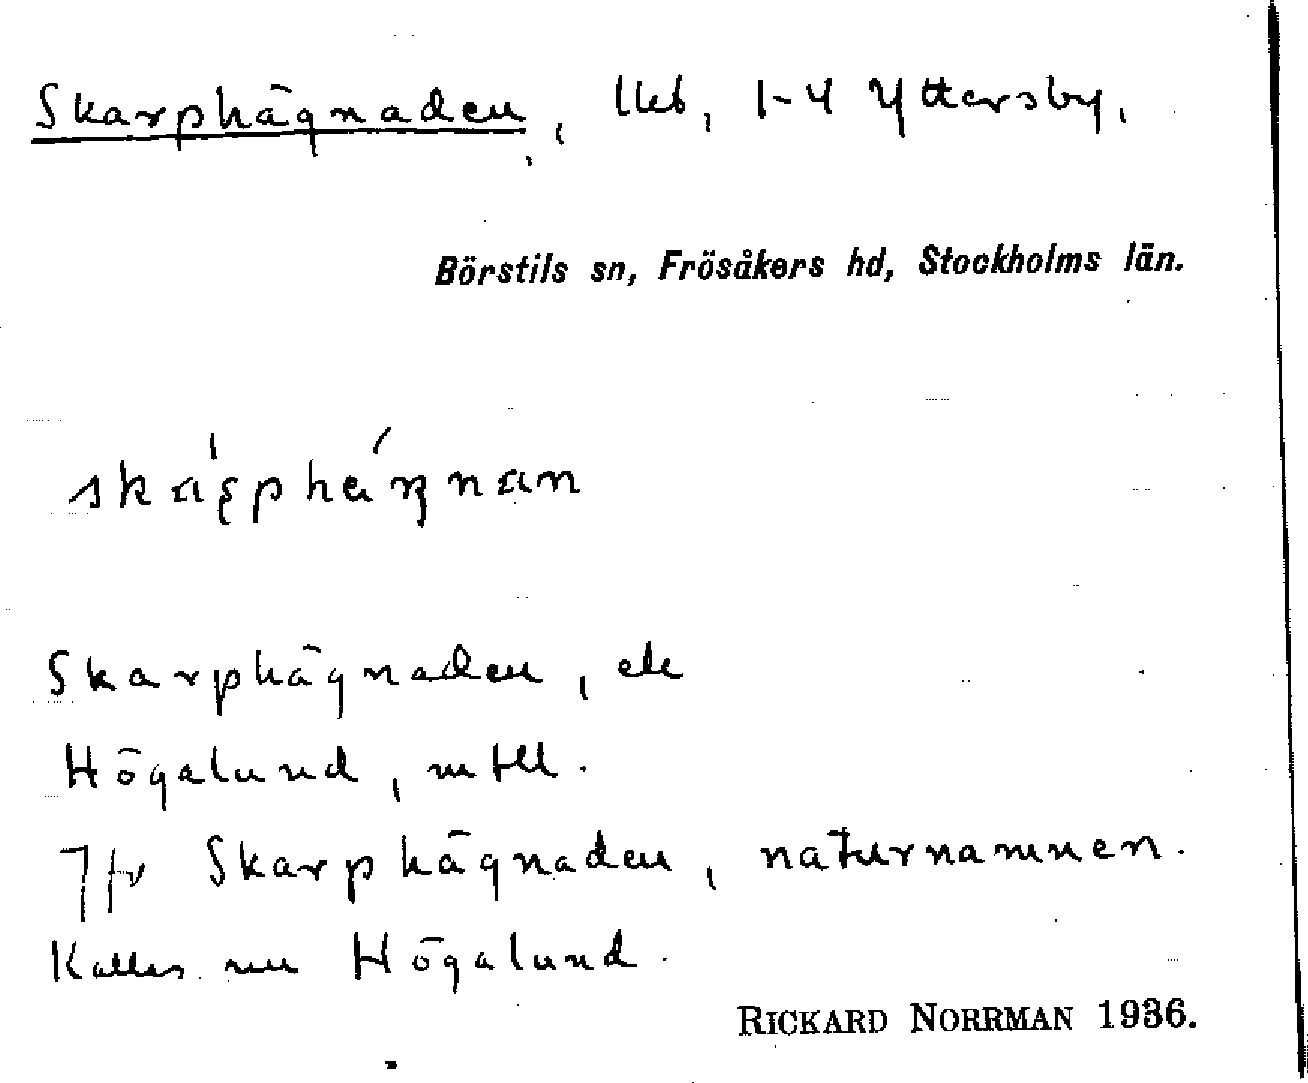 Skarphägnaden, lkb, 1-4 Yttersby,
Börstils sn, Frösåkers hd, Stockholms län.
Skarphägnaden, ek
Högalund, mtll.
Jfr Skarphägnaden, naturnamnen.
Kallas nu Högalund.
RICKARD NORRMAN 1936.